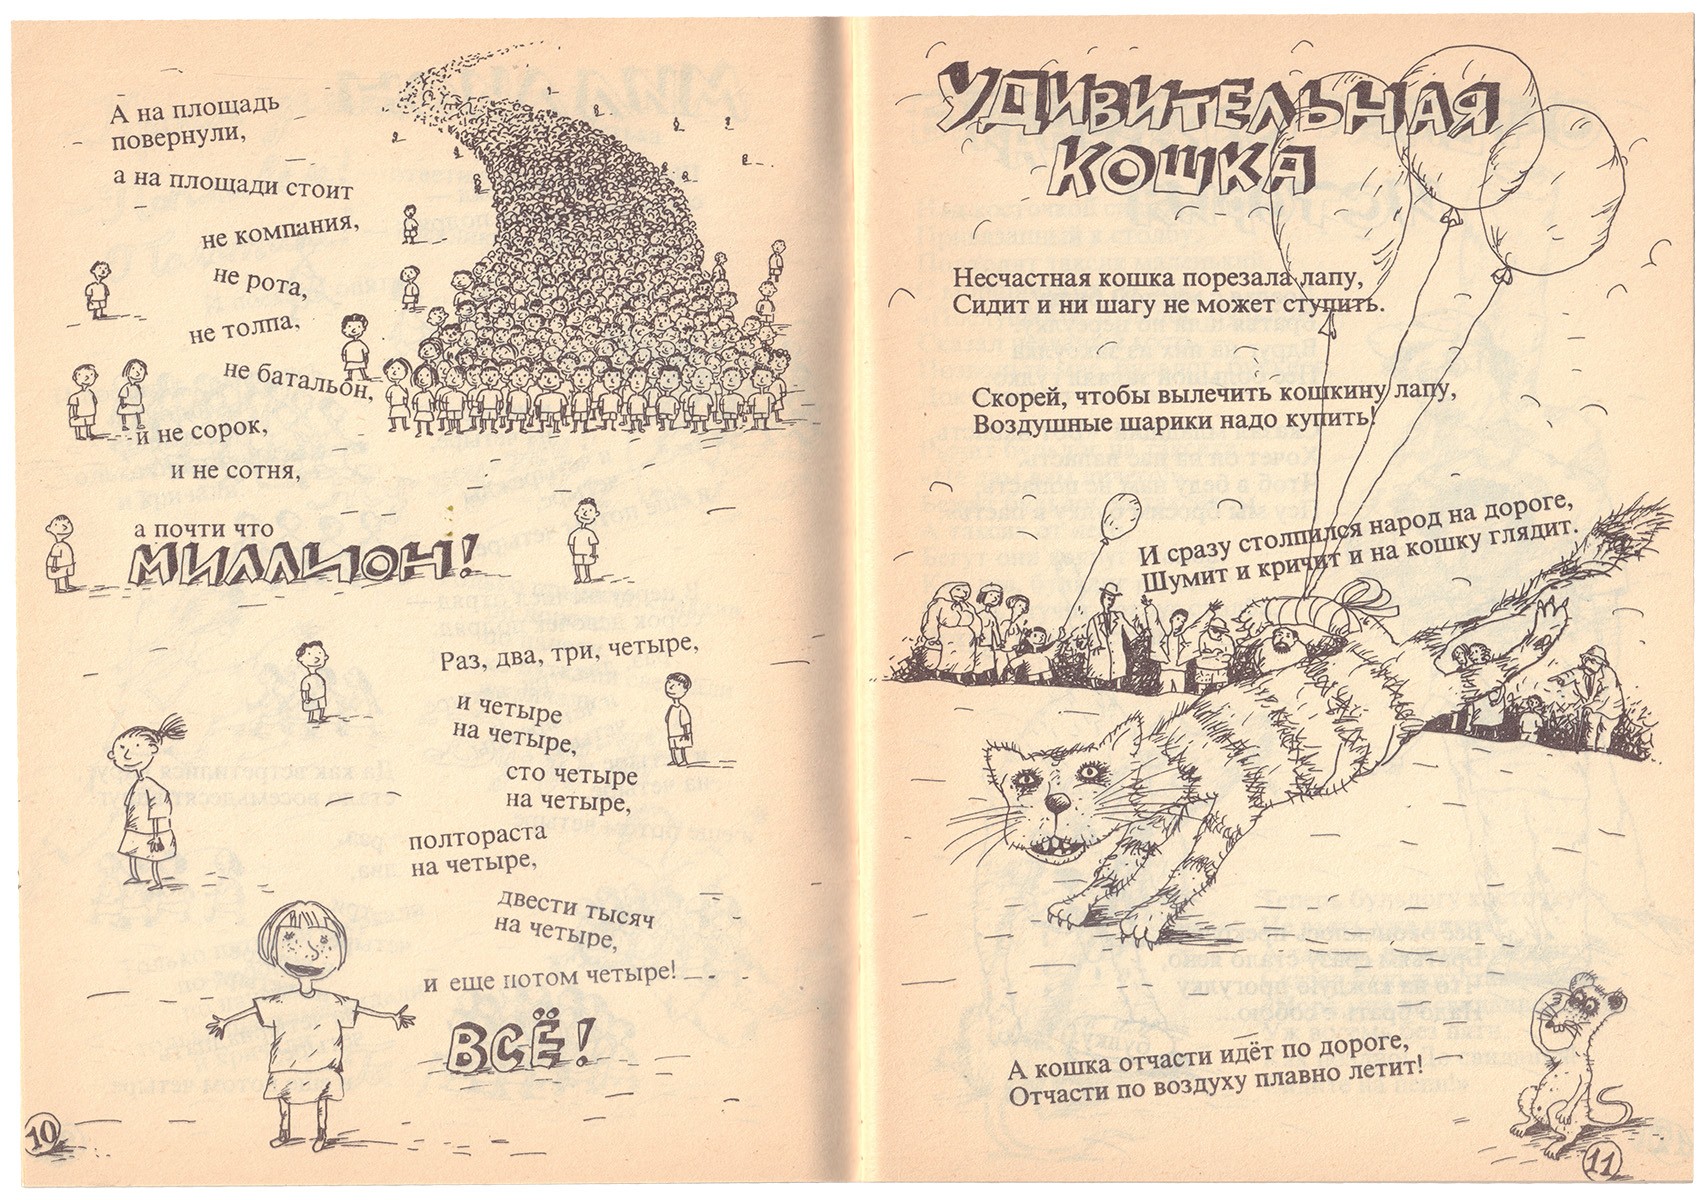 А на площадь
повернули,
а на площади стоит
не компания,
не рота,
не толпа,
не батальон,
и не сорок,
и не сотня,
а почти что
МИЛЛИОН!
Раз, два, три, четыре,
и четыре
на четыре,
сто четыре
на четыре,
полтораста
на четыре,
двести тысяч
на четыре,
и еще потом четыре!
ВСЁ!
10
УДИВИТЕЛЬНАЯ
КОШКА
Несчастная кошка порезала лапу,
Сидит и ни шагу не может ступить.
Скорей, чтобы вылечить кошкину лапу,
Воздушные шарики надо купить!
И сразу столпился народ на дороге,
Шумит и кричит и на кошку глядит.
А кошка отчасти идёт по дороге,
Отчасти по воздуху плавно летит!
11